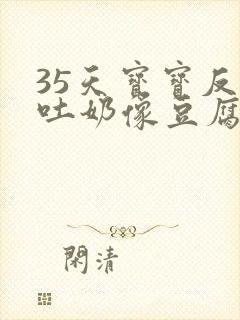 35天寶寶反
吐奶像豆腐
閑清